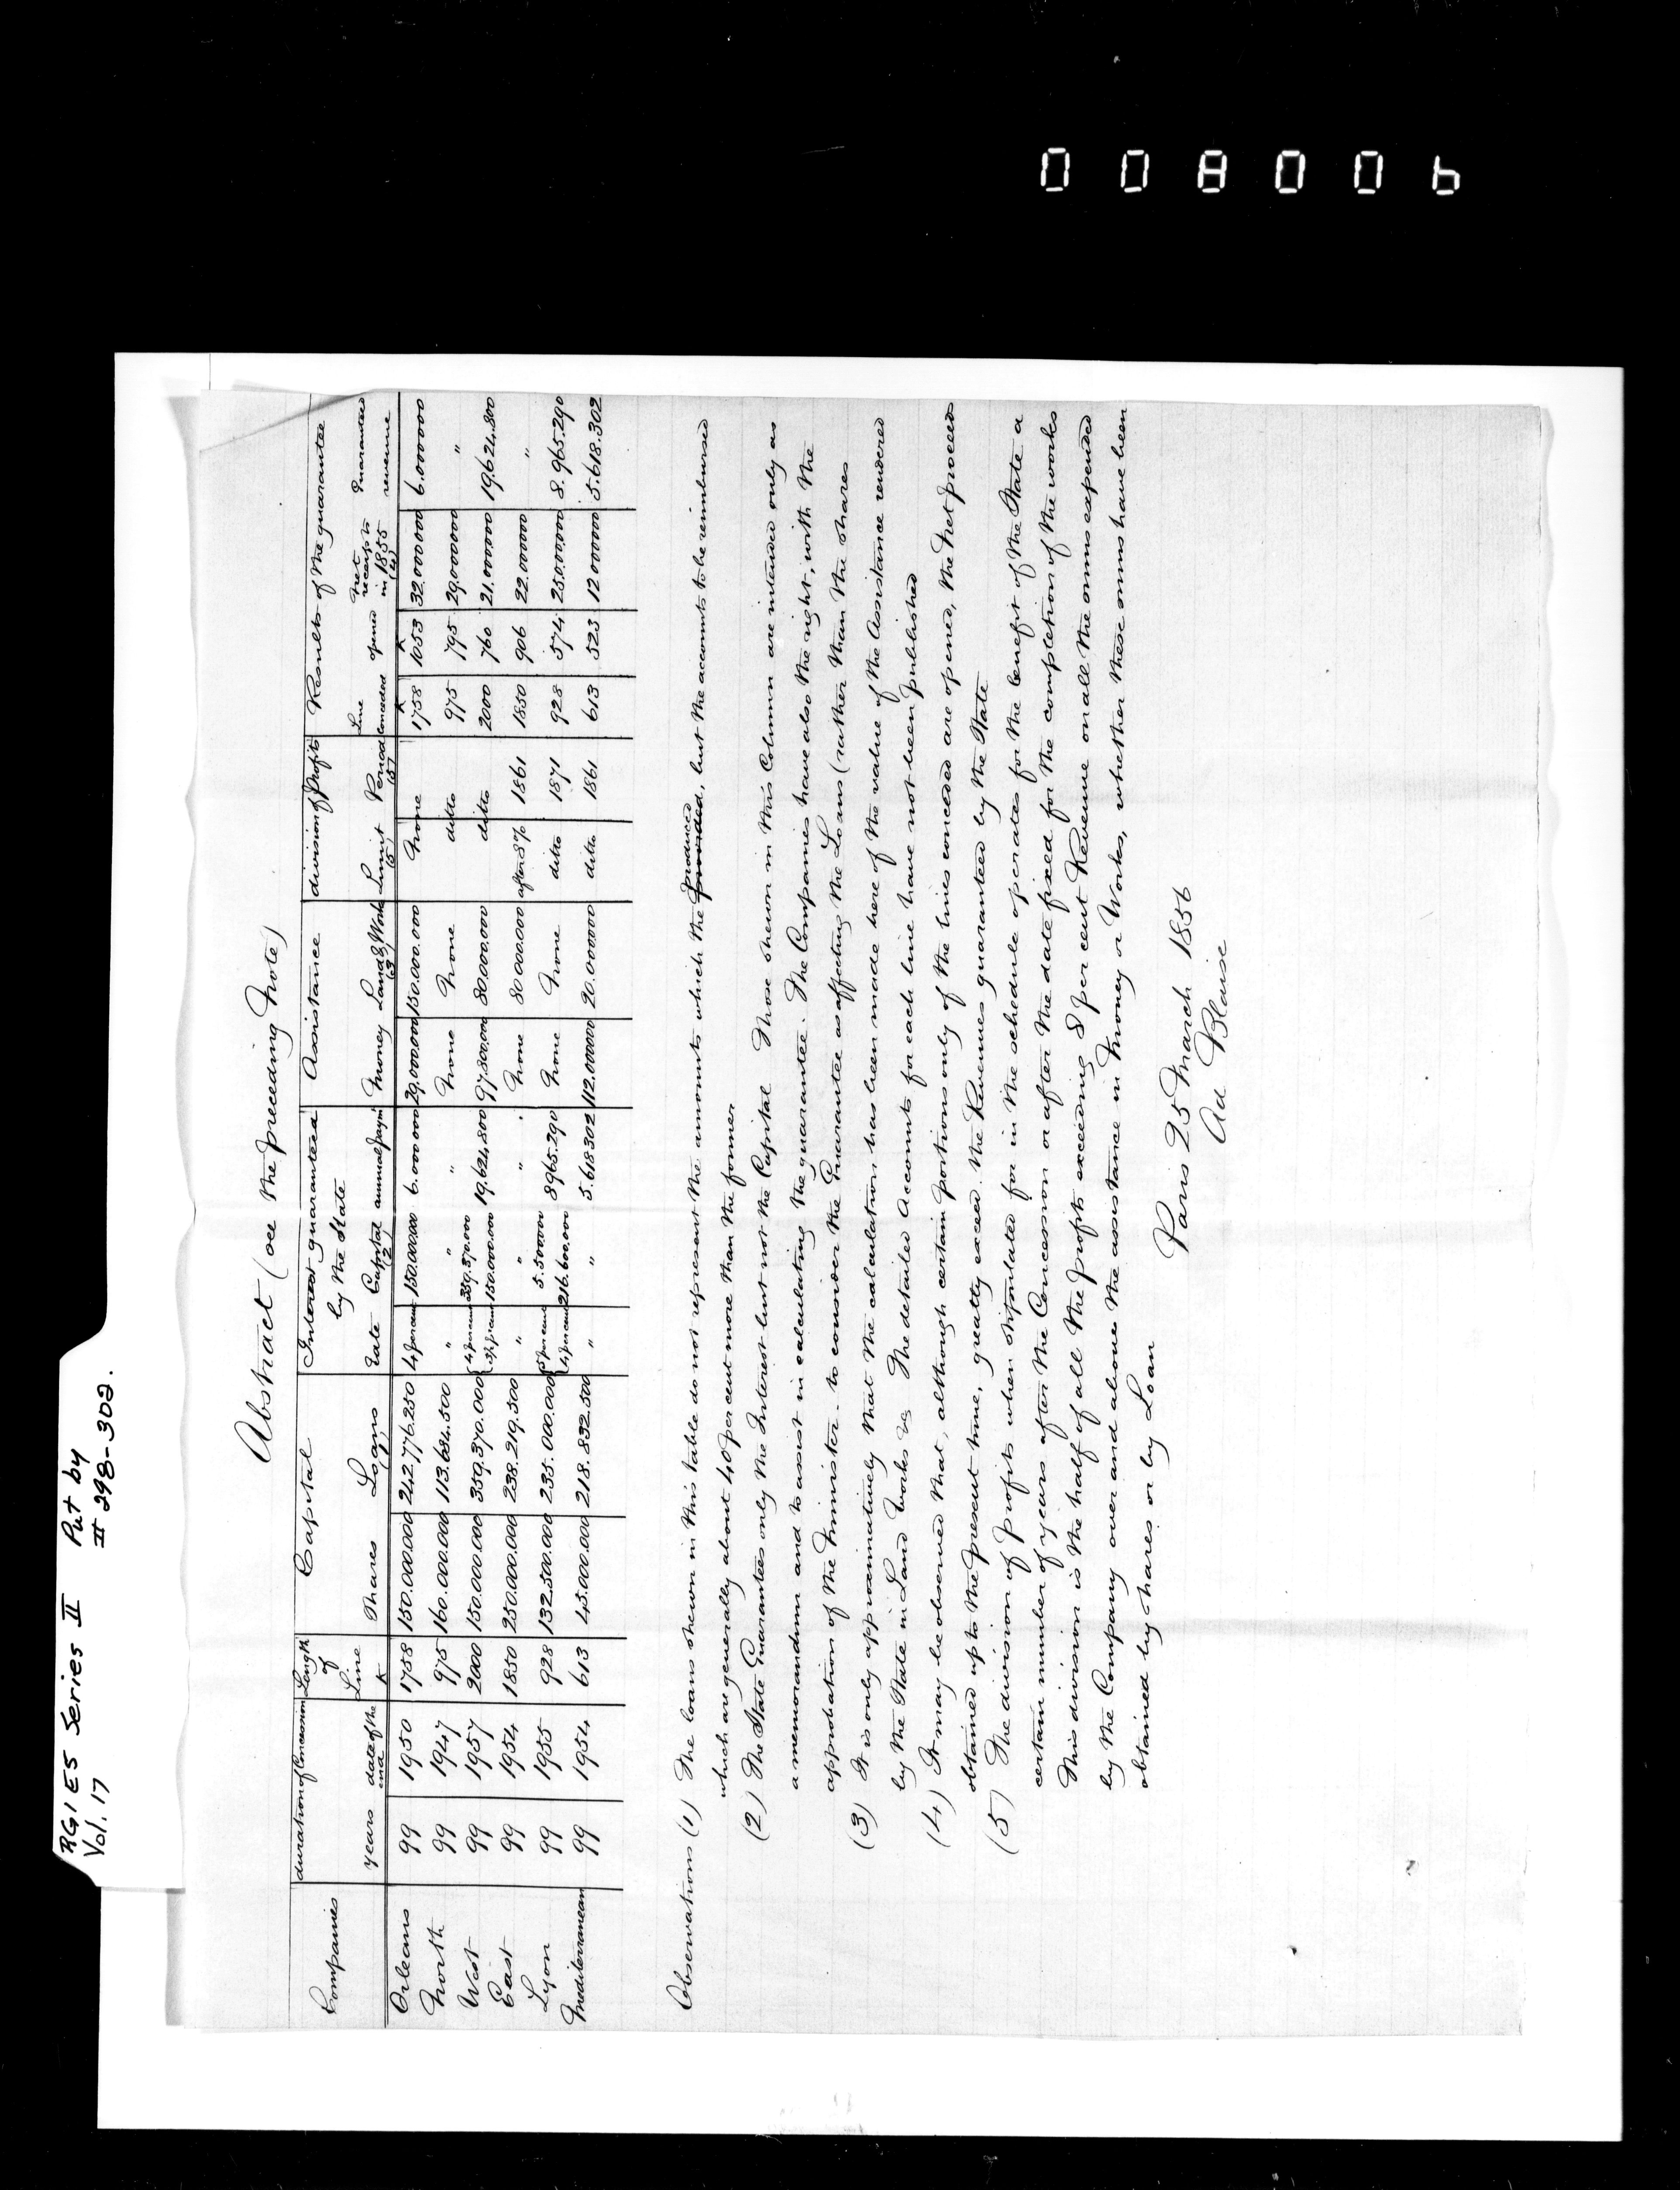 008006
RG1 E5 Series II Put by
Vol. 17 # 298-302.
Abstract (see the preceding Note)
Companies | duration of Concession | Length of Line | Capital | Interest guaranteed by the State | Assistance | division of Profits | Results of the guarantee
years | date of the end | K | Shares | Loans (1) | rate | Capital (2) | annual paymt | Money | Land & Works (3) | Limit (5) | Period (5) | Line conceded | opened | Net receipts in 1855 (4) | Guaranteed revenue
Orleans | 99 | 1950 | 1758 | 150.000.000 | 242.776.250 | 4 per cent | 150.000.000 | 6.000 000 | 29.000.000 | 150.000.000 | None | | K 1758 | K 1053 | 32.000 000 | 6.000000
North | 99 | 1947 | 975 | 160.000.000 | 113.684.500 | " | " | " | None | None | ditto | | 975 | 795 | 29.000000 | "
West | 99 | 1957 | 2000 | 150.000.000 | 359.370.000 | { 4 per cent 3½ per cent | 359.370.000 150.000.000 | 19.624.800 | 97.800.000 | 80.000.000 | ditto | | 2000 | 760 | 21.000000 | 19.624.800
East | 99 | 1954 | 1850 | 250.000.000 | 238.219.500 | " | " | " | None | 80 000.000 | after 8% | 1861 | 1850 | 906 | 22.000000 | "
Lyon | 99 | 1955 | 928 | 132.500.000 | 235.000.000 | { 5 per cent 4 per cent | 5.500000 216.600.000 | 8965.290 | None | None | ditto | 1871 | 928 | 574 | 25.000000 | 8.965.290
Mediterranean | 99 | 1954 | 613 | 45.000.000 | 218.832.500 | " | " | 5.618302 | 112.000000 | 20.000000 | ditto | 1861 | 613 | 523 | 12 000000 | 5.618.302
Observations (1) The loans shewn in this table do not represent the amounts which the provided produced, but the accounts to be reimbursed
which are generally about 40 per cent more than the former
(2) The State Guarantees only the Interest but not the Capital Those shewn in this Column are intended only as
a memorandum and to assist in calculating the guarantee. The Companies have also the right, with the
approbation of the Minister to consider the Guarantee as affecting the Loans (rather than the shares
(3) It is only approximatively that the calculation has been made here of the value of the Assistance rendered
by the State in Land Works &c The detailed Accounts for each line have not been published
(4) It may be observed that, although certain portions only of the lines conceded are opened, the Net proceeds
obtained up to the present time, greatly exceed the Revenues guaranteed by the State
(5) The division of profits when stipulated for in the schedule operates for the benefit of the State a
certain number of years after the Concession or after the date fixed for the completion of the works
This division is the half of all the profits exceeding 8 per cent Revenue on all the sums expended
by the Company over and above the assistance in Money or Works, whether these sums have been
obtained by shares or by Loan
Paris 25 March 1856
Ad Blaise